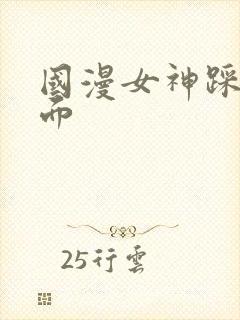 國漫女神踩
而
25行雲